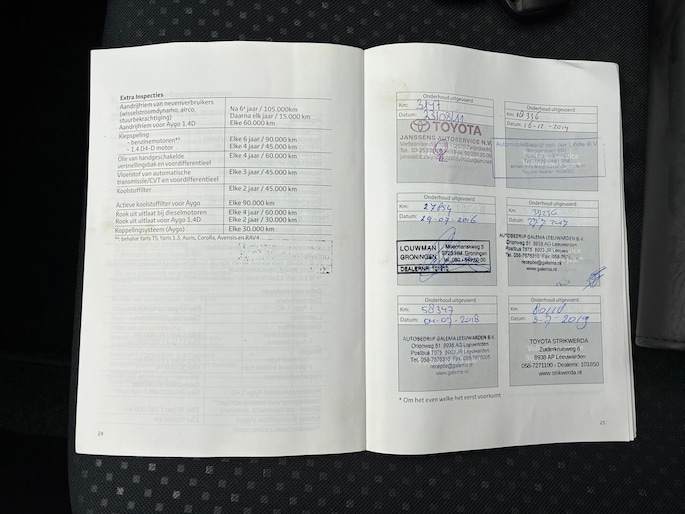 Extra Inspecties
Aandrijfriem van nevenverbruikers
(wisselstroomdynamo, airco,
stuurbekrachtiging)
Aandrijfriem voor Aygo 1.4D
Na 6e jaar / 105.000km
Daarna elk jaar / 15.000 km
Elke 60.000 km
Klepspeling
- benzinemotoren**
- 1.4 D4-D motor
Elke 6 jaar / 90.000 km
Elke 4 jaar / 45.000 km
Olie van handgeschakelde
versnellingsbak en voordifferentieel
Elke 4 jaar / 60.000 km
Vloeistof van automatische
transmissie/CVT en voordifferentieel
Elke 3 jaar / 45.000 km
Koolstoffilter
Elke 2 jaar / 45.000 km
Actieve koolstoffilter voor Aygo
Elke 90.000 km
Rook uit uitlaat bij dieselmotoren
Elke 4 jaar / 60.000 km
Rook uit uitlaat voor Aygo 1.4D
Elke 2 jaar / 30.000 km
Koppelingsysteem (Aygo)
Elke 30.000 km
**: behalve Yaris TS, Yaris 1.3, Auris, Corolla, Avensis en RAV4
24
Onderhoud uitgevoerd
Km:
Datum: 23/08/11
TOYOTA
JANSSENS AUTOSERVICE N.V.
Onderhoud uitgevoerd
Km:
Datum: 16-12-2014
Automobielbedrijf van der Linde B.V.
Onderhoud uitgevoerd
Km:
Datum: 19-07-2016
LOUWMAN
GRONINGEN
DEALERNR.
9723 HM Groningen
Onderhoud uitgevoerd
Km:
Datum:
AUTOBEDRIJF GALEMA LEEUWARDEN B.V.
Orionweg 51 8938 AG Leeuwarden
Postbus 7075 8903 JR Leeuwarden
www.galema.nl
Onderhoud uitgevoerd
Km: 58347
Datum: 04-07-2018
AUTOBEDRIJF GALEMA LEEUWARDEN B.V.
Orionweg 51 8938 AG Leeuwarden
Postbus 7075 8903 JR Leeuwarden
www.galema.nl
Onderhoud uitgevoerd
Km:
Datum: 3-7-2019
TOYOTA STRIKWERDA
Zuiderkruisweg 6
8938 AP Leeuwarden
www.strikwerda.nl
* Om het even welke het eerst voorkomt
25